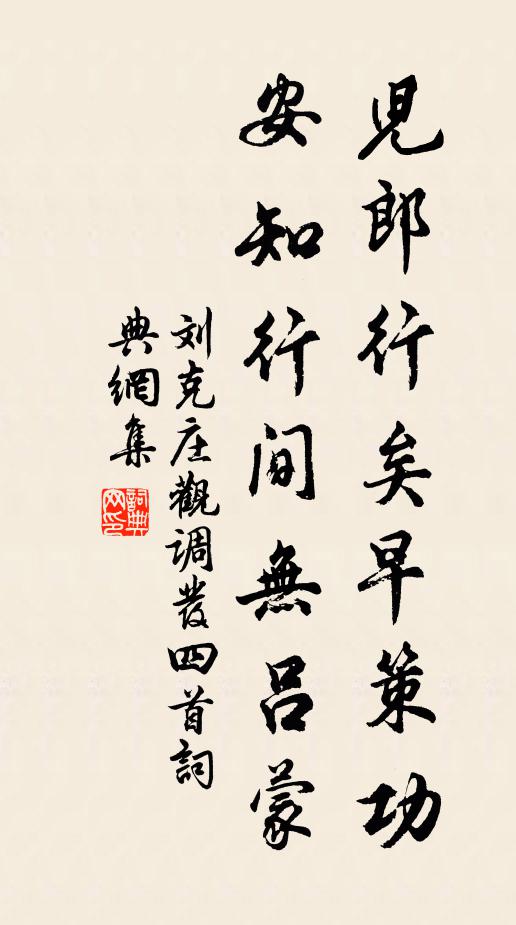 児郎行矣早策功
安知行間無呂蒙
刘克庄觀调發四首詞
典網集
詞典
网印